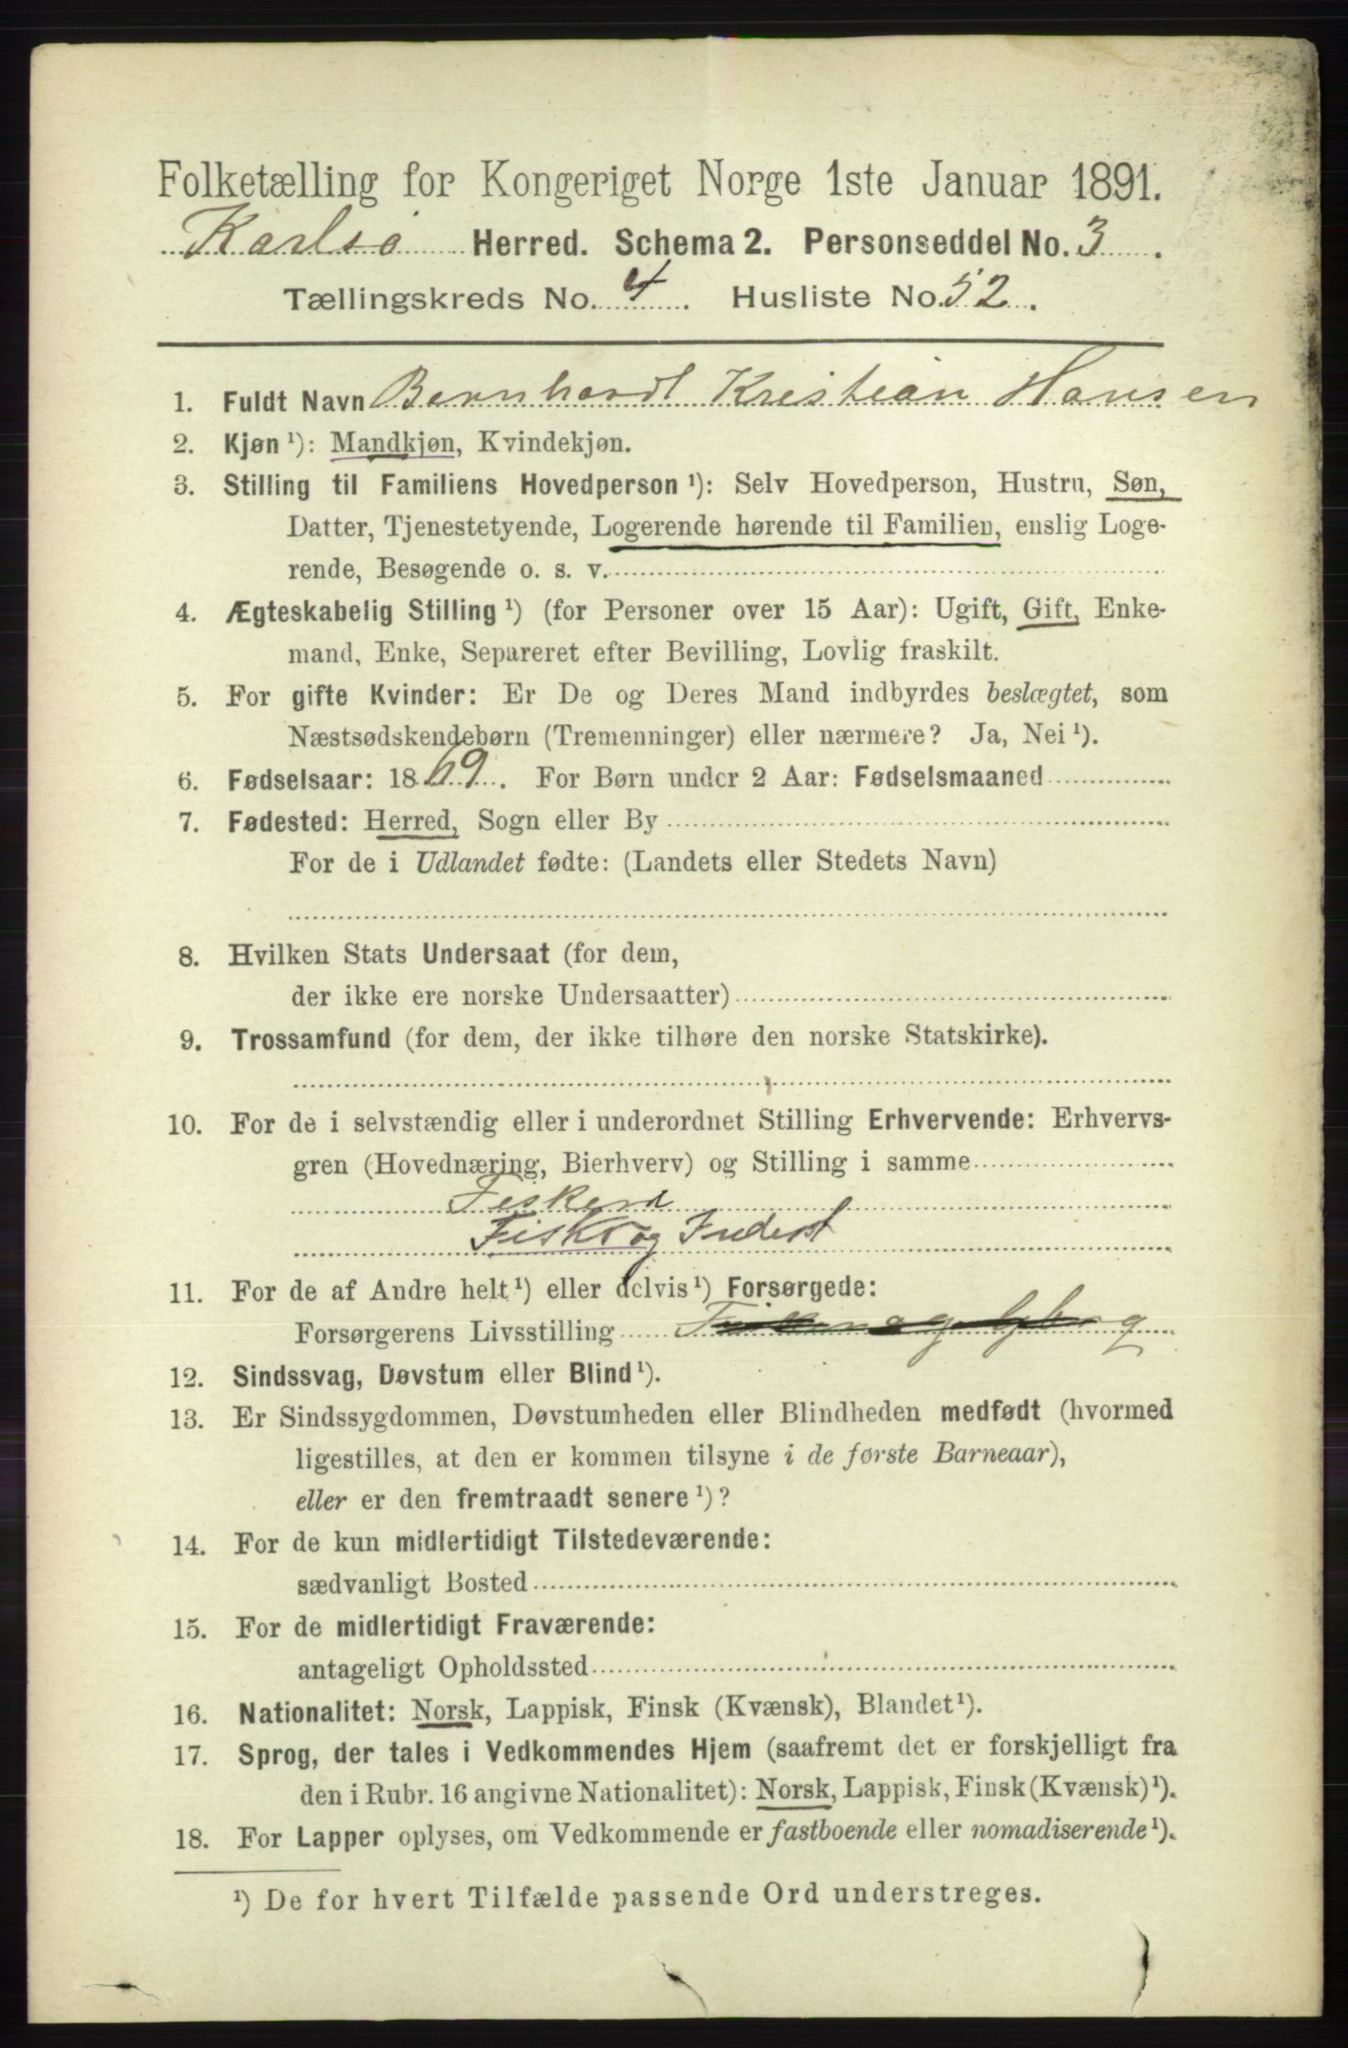 Folketælling for Kongeriget Norge 1ste Januar 1891.
Karlsø Herred. Schema 2. Personseddel No. 3.
Tællingskreds No. 4. Husliste No. 52.
1. Fuldt Navn Bernhardt Kristian Hansen
2. Kjøn ¹): Mandkjøn, Kvindekjøn.
3. Stilling til Familiens Hovedperson ¹): Selv Hovedperson, Hustru, Søn,
Datter, Tjenestetyende, Logerende hørende til Familien, enslig Loge-
rende, Besøgende o. s. v.
4. Ægteskabelig Stilling ¹) (for Personer over 15 Aar): Ugift, Gift, Enke-
mand, Enke, Separeret efter Bevilling, Lovlig fraskilt.
5. For gifte Kvinder: Er De og Deres Mand indbyrdes beslægtet, som
Næstsødskendebørn (Tremenninger) eller nærmere? Ja, Nei ¹).
6. Fødselsaar: 1869. For Børn under 2 Aar: Fødselsmaaned
7. Fødested: Herred, Sogn eller By
For de i Udlandet fødte: (Landets eller Stedets Navn)
8. Hvilken Stats Undersaat (for dem,
der ikke ere norske Undersaatter)
9. Trossamfund (for dem, der ikke tilhøre den norske Statskirke).
10. For de i selvstændig eller i underordnet Stilling Erhvervende: Erhvervs-
gren (Hovednæring, Bierhverv) og Stilling i samme
Fisker
Fisker og Inderst
11. For de af Andre helt ¹) eller delvis ¹) Forsørgede:
Forsørgerens Livsstilling
12. Sindssvag, Døvstum eller Blind ¹).
13. Er Sindssygdommen, Døvstumheden eller Blindheden medfødt (hvormed
ligestilles, at den er kommen tilsyne i de første Barneaar),
eller er den fremtraadt senere ¹)?
14. For de kun midlertidigt Tilstedeværende:
sædvanligt Bosted
15. For de midlertidigt Fraværende:
antageligt Opholdssted
16. Nationalitet: Norsk, Lappisk, Finsk (Kvænsk), Blandet ¹).
17. Sprog, der tales i Vedkommendes Hjem (saafremt det er forskjelligt fra
den i Rubr. 16 angivne Nationalitet): Norsk, Lappisk, Finsk (Kvænsk) ¹).
18. For Lapper oplyses, om Vedkommende er fastboende eller nomadiserende ¹).
¹) De for hvert Tilfælde passende Ord understreges.